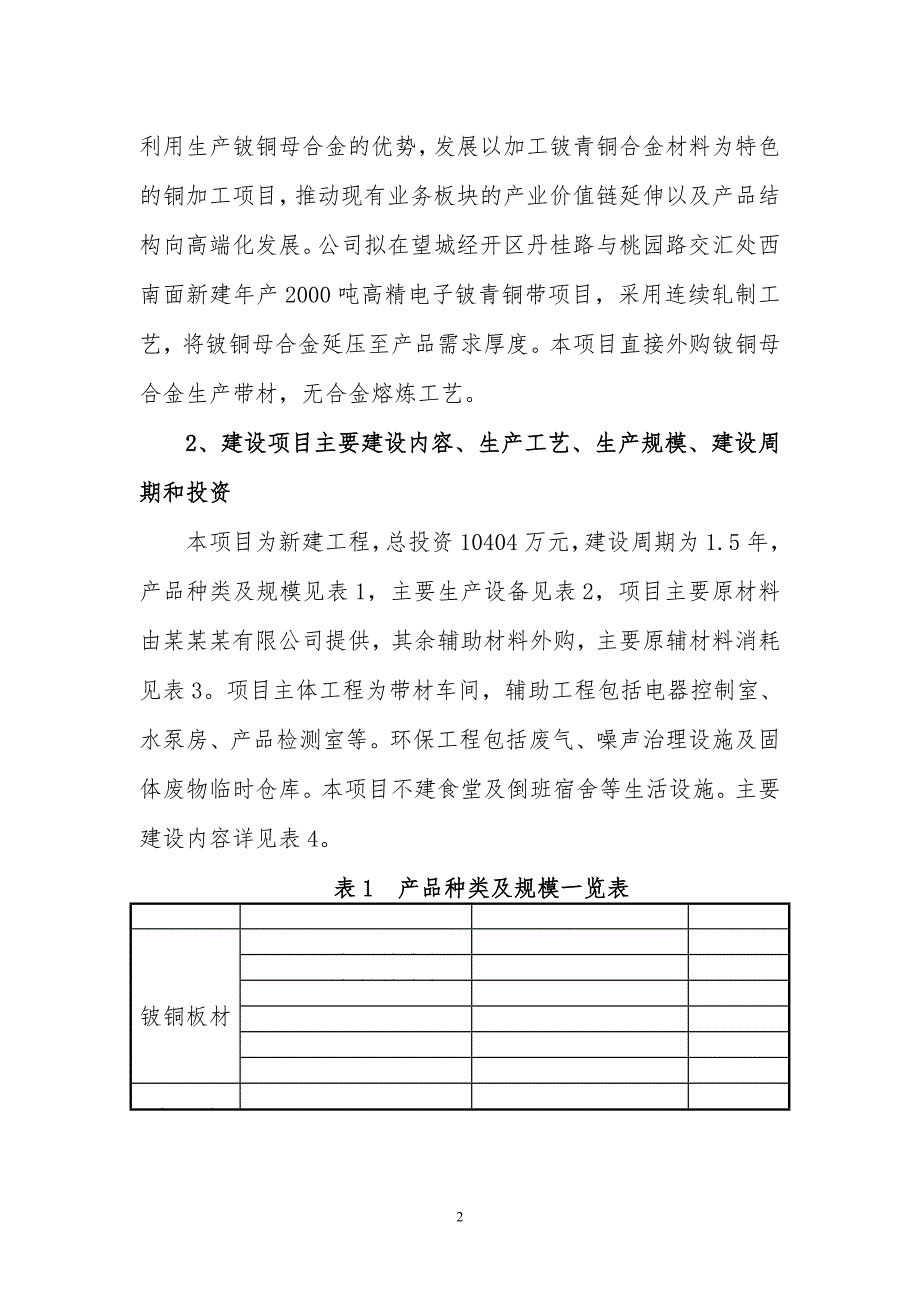 利用生产铍铜母合金的优势，发展以加工铍青铜合金材料为特色
的铜加工项目，推动现有业务板块的产业价值链延伸以及产品结
构向高端化发展。公司拟在望城经开区丹桂路与桃园路交汇处西
南面新建年产 2000 吨高精电子铍青铜带项目，采用连续轧制工
艺，将铍铜母合金延压至产品需求厚度。本项目直接外购铍铜母
合金生产带材，无合金熔炼工艺。
2、建设项目主要建设内容、生产工艺、生产规模、建设周
期和投资
本项目为新建工程，总投资 10404 万元，建设周期为 1.5 年，
产品种类及规模见表 1，主要生产设备见表 2，项目主要原材料
由某某某有限公司提供，其余辅助材料外购，主要原辅材料消耗
见表 3。项目主体工程为带材车间，辅助工程包括电器控制室、
水泵房、产品检测室等。环保工程包括废气、噪声治理设施及固
体废物临时仓库。本项目不建食堂及倒班宿舍等生活设施。主要
建设内容详见表 4。
表 1 产品种类及规模一览表
铍铜板材
2